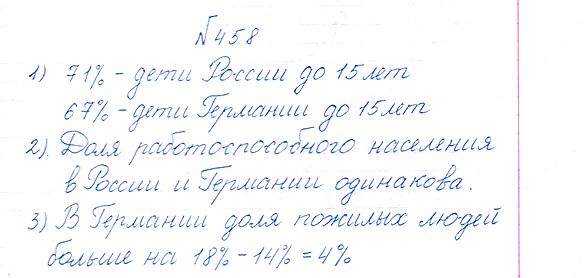 №458
1) 71% - дети России до 15 лет
67% - дети Германии до 15 лет
2). Доля работоспособного населения
в России и Германии одинакова.
3) В Германии доля пожилых людей
больше на 18% - 14% = 4%